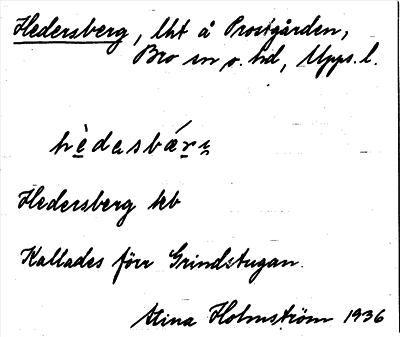 Hedersberg, lht å Prostgården,
Bro sn o. hd, Upps. l.
hèdasbár̤
Hedersberg kb
Kallades förr Grindstugan.
Stina Holmström 1936